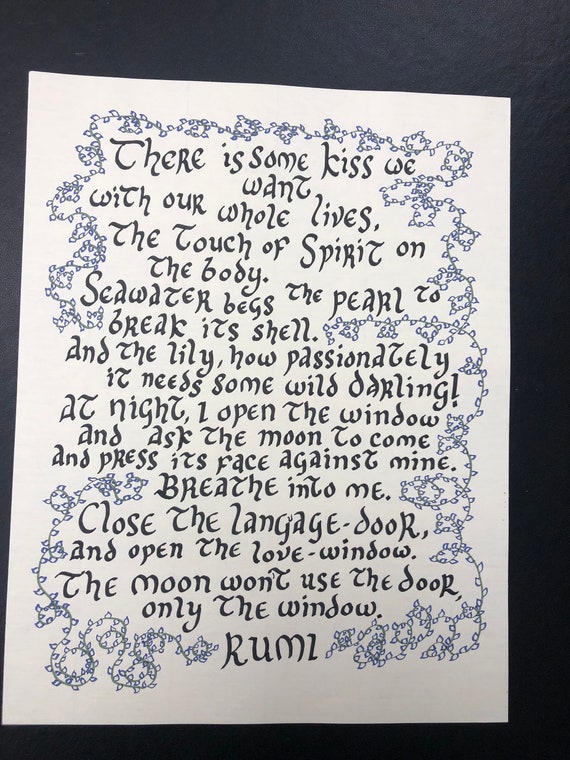 There is some kiss we
want
with our whole lives,
The Touch of Spirit on
the body.
Seawater begs the pearl to
break its shell.
and the lily, how passionately
it needs some wild darling!
at night, I open the window
and ask the moon to come
and press its face against mine.
Breathe into me.
Close the langage-door,
and open the love-window.
The moon won't use the door,
only the window.
RUMI